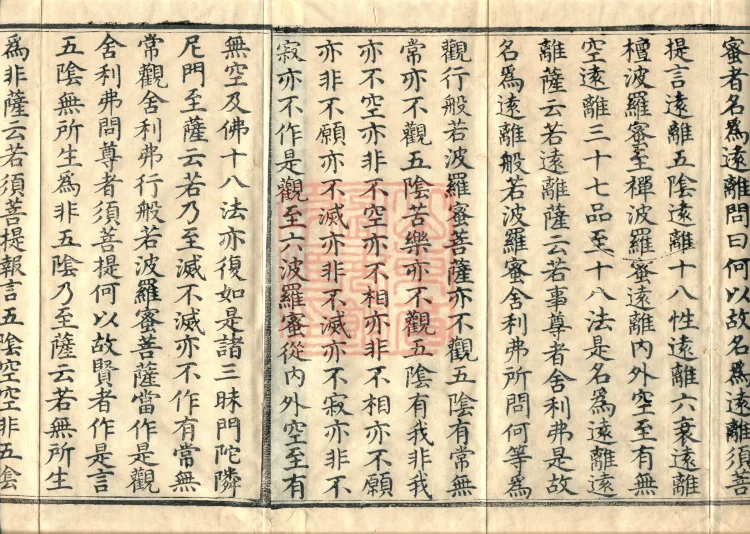 蜜者名為遠離問曰何以故名為遠離須菩
提言遠離五陰遠離十八性遠離六衰遠離
檀波羅蜜至禪波羅蜜遠離內外空至有無
空遠離三十七品至十八法是名為遠離遠
離薩云若遠離薩云若事尊者舍利弗是故
名為遠離般若波羅蜜舍利弗所問何等為
觀行般若波羅蜜菩薩亦不觀五陰有常無
常亦不觀五陰苦樂亦不觀五陰有我非我
亦不空亦非不空亦不相亦非不相亦不願
亦非不願亦不滅亦非不滅亦不寂亦非不
寂亦不作是觀至六波羅蜜從內外空至有
無空及佛十八法亦復如是諸三昧門陀隣
尼門至薩云若乃至滅不滅亦不作有常無
常觀舍利弗行般若波羅蜜菩薩當作是觀
舍利弗問尊者須菩提何以故賢者作是言
五陰無所生為非五陰乃至薩云若無所生
為非薩云若須菩提報言五陰空空非五陰